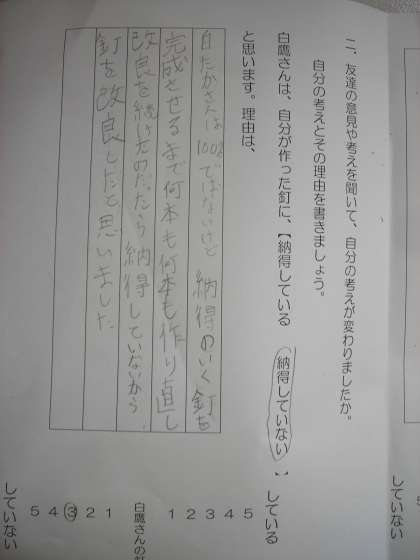 二、友達の意見や考えを聞いて、自分の考えが変わりましたか。
自分の考えとその理由を書きましょう。
白鷹さんは、自分が作った釘に、【納得している　納得していない】
と思います。理由は、
白たかさんは100%ではないけど 納得のいく釘を
完成させるまで何本も何本も作り直し
改良を続けたのだったら納得していないから、
釘を改良したと思いました。
している
5
4
3
2
1
白鷹さんの
1
2
3
4
5
していない
していない